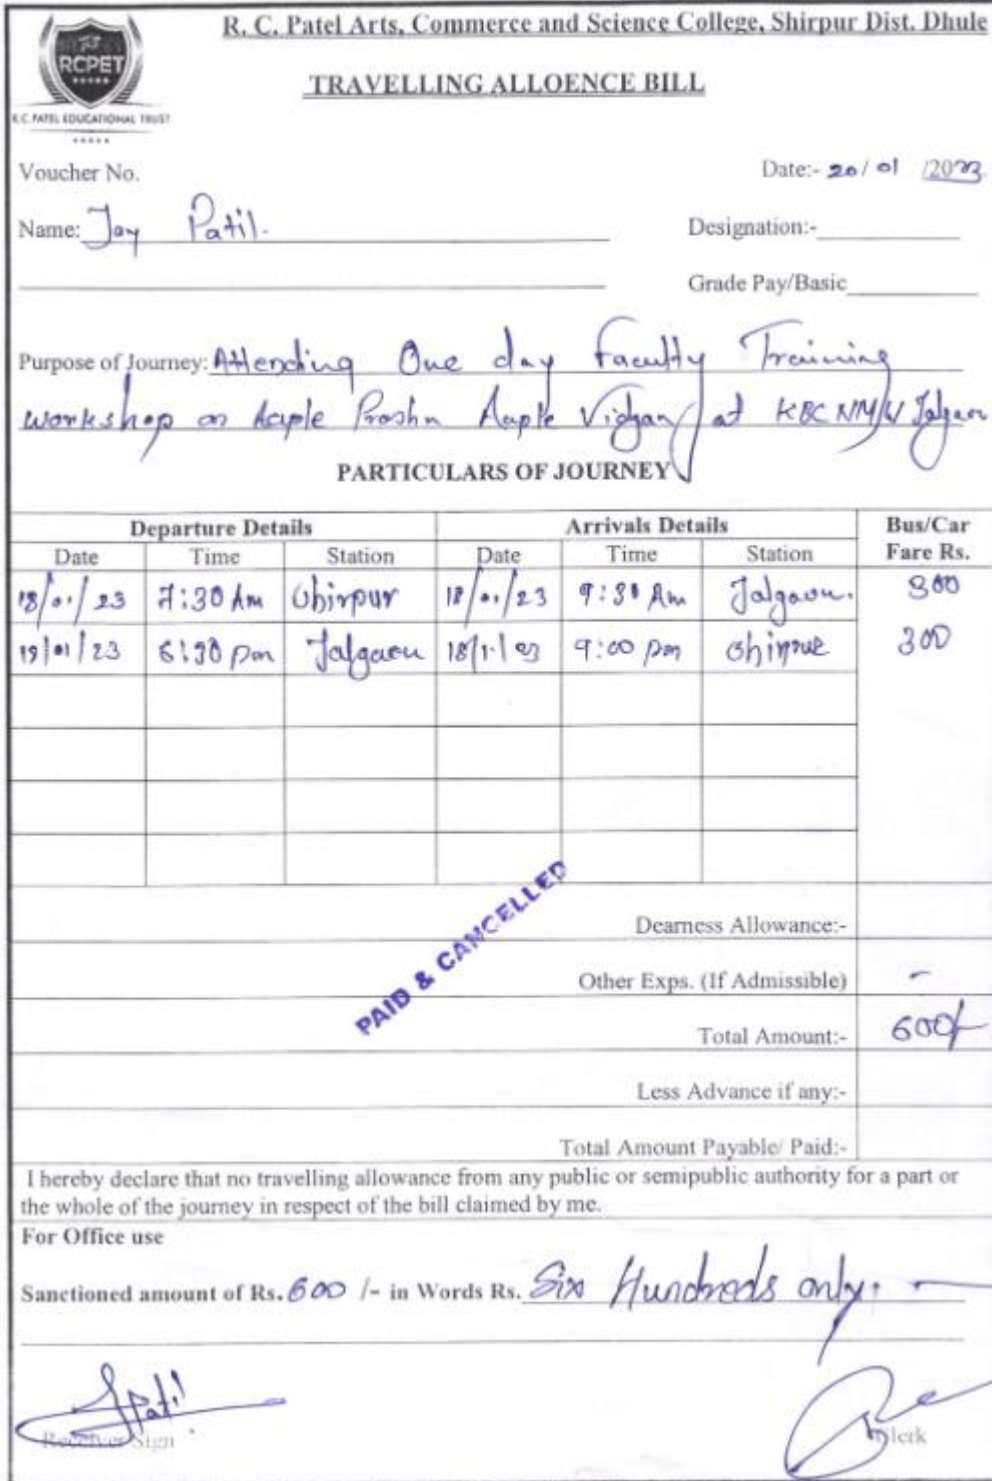 R. C. Patel Arts, Commerce and Science College, Shirpur Dist. Dhule
RCPET
R.C. PATEL EDUCATIONAL TRUST
TRAVELLING ALLOENCE BILL
Voucher No. Date:- 20/01/2023
Name: Jay Patil. Designation:-
Grade Pay/Basic
Purpose of Journey: Attending One day Faculty Training
workshop on Aaple Prashn Aaple Vidyan at KBC NMU Jalgaon
PARTICULARS OF JOURNEY
Departure Details Arrivals Details Bus/Car
Date Time Station Date Time Station Fare Rs.
18/01/23 7:30 Am Shirpur 18/01/23 9:30 Am Jalgaon. 300
6:30 pm Jalgaon 9:00 pm 300
Dearness Allowance:-
PAID & CANCELLED
Other Exps. (If Admissible) -
Total Amount:- 600/-
Less Advance if any:-
Total Amount Payable/ Paid:-
I hereby declare that no travelling allowance from any public or semipublic authority for a part or
the whole of the journey in respect of the bill claimed by me.
For Office use
Sanctioned amount of Rs. 600 /- in Words Rs. Six Hundreds only.
JPatil
Receiver Sign Clerk